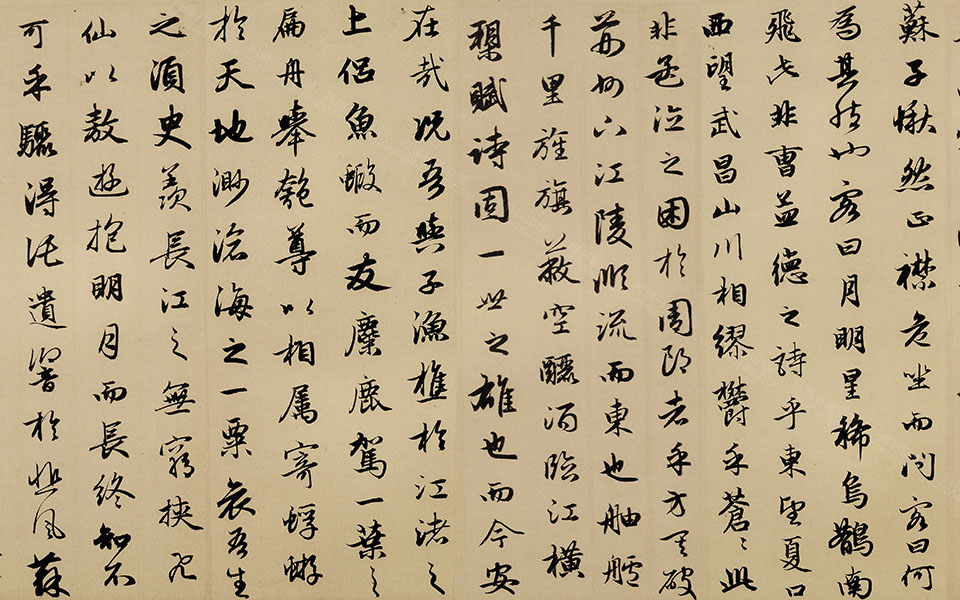 蘇子愀然正襟危坐而問客曰何
為其然也客曰月明星稀烏鵲南
飛此非曹孟德之詩乎東望夏口
西望武昌山川相繆鬱乎蒼〻此
非孟德之困於周郎者乎方其破
荊州下江陵順流而東也舳艫
千里旌旗蔽空釃酒臨江橫
槊賦詩固一世之雄也而今安
在哉況吾與子漁樵於江渚之
上侶魚蝦而友麋鹿駕一葉之
扁舟舉匏尊以相属寄蜉蝣
於天地渺滄海之一粟哀吾生
之須臾羨長江之無窮挾飛
仙以敖遊抱明月而長終知不
可乎驟得託遺響於悲風蘇